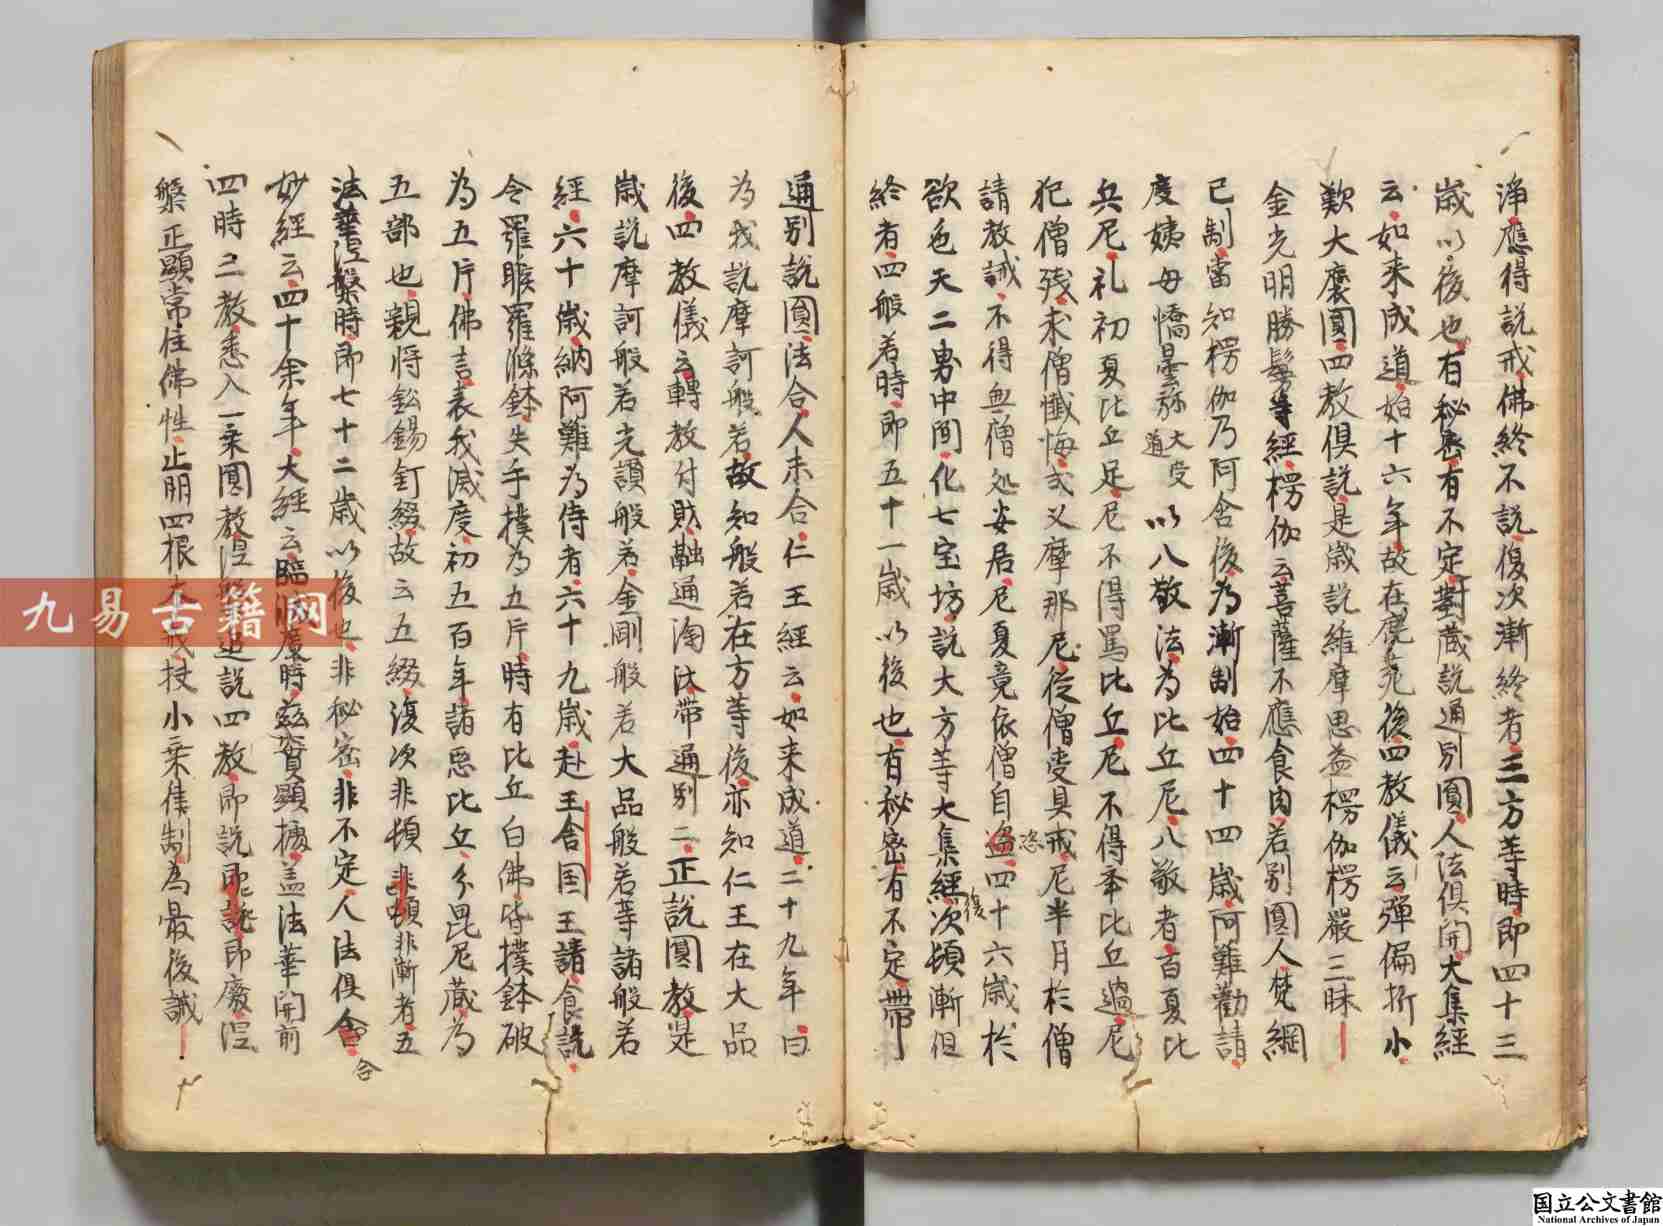 淨應得説戒佛終不説復次漸終者三方等時即四十三
歳以後也有秘密有不定對蔵説通別圓人法倶開大集經
云如来成道始十六年故在鹿苑後四教儀云彈偏折小
歎大襃圓四教倶説是歳説維摩思益楞伽楞嚴三昧
金光明勝鬘等經楞伽云菩薩不應食肉若別圓人梵網
已制當知楞伽乃阿含後為漸制始四十四歳阿難勸請
度姨母憍曇弥大愛道以八敬法為比丘尼八敬者百夏比
丘尼礼初夏比丘足尼不得罵比丘尼不得挙比丘過尼
犯僧残求僧懺悔式叉摩那尼從僧受具戒尼半月於僧
請教誡不得無僧処安居尼夏竟依僧自恣四十六歳於
欲色天二界中間化七宝坊説大方等大集經復次頓漸但
終者四般若時即五十一歳以後也有秘密有不定帯
通別説圓法合人未合仁王經云如来成道二十九年曰
為我説摩訶般若故知般若在方等後亦知仁王在大品
後四教儀云轉教付財融通淘汰帯通別二正説圓教是
歳説摩訶般若光讃般若金剛般若大品般若等諸般若
經六十歳納阿難為侍者六十九歳赴王舎国王請食説
令羅睺羅滌鉢失手撲為五片時有比丘白佛皆撲鉢破
為五片佛言表我滅度初五百年諸惡比丘分毘尼蔵為
五部也親将鉛錫釘綴故云五綴復次非頓非漸者五
法華涅槃時即七十二歳以後也非秘密非不定人法倶合
合
妙經云四十余年大經云臨滅度時茲實顯據盖法華開前
四時三教悉入一乗圓教涅槃追説四教即説即廢涅
槃正顯常住佛性止明四根大戒扶小乗律制為最後誡
九易古籍网
国立公文書館
National Archives of Japan